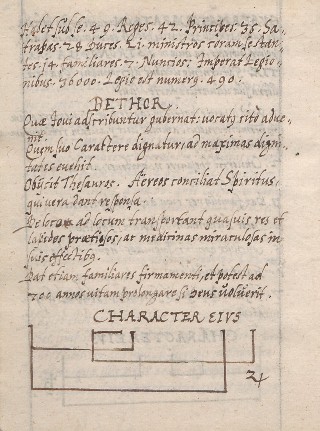 Habet sub se .49. Reges. 42. Principes. 35. Sa-
trapas. 28 Duces. 21. ministros coram se stan-
tes. 14. familiares. 7. Nuncios: Imperat Legio-
nibus. 36000. Legio est numerꝰ 490.
BETHOR.
Quæ Ioui adscribuntur gubernat: vocatꝰ sito adue-
nit.
Quem suo Caractere dignatur, ad maximas digni-
tates euehit.
Obijcit Thesauros. Aereos conciliat Spiritus,
qui vera dant responsa.
De loco ad locum transportant quasuis res et
lapides prætiosos, ac medicinas miraculosas in
suis effectibꝰ.
Dat etiam familiares firmamenti, et potest ad
700 annos vitam prolongare si Deus voluerit.
CHARACTER EIVS
♃